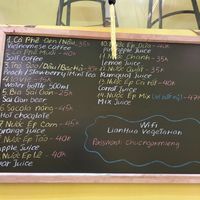 1. Cà Phê Đen/Nâu - 35k
Vietnamese Coffee
Cà Phê Muối - 40k
Salt Coffee
3. Trà Đào/Dâu/Bạc Hà - 35k
Peach/Strawberry/Mint Tea
4. Lavie
Water bottle 500ml
5. Bia Sài Gòn - 25k
Sai Gon beer
6. Sô Cô La nóng - 45k
Hot chocolate
7. Nước Ép Cam - 45k
Orange Juice
Nước Ép Táo - 40k
Apple Juice
Nước Ép Lê - 40k
Pear Juice
10. Nước Ép Dứa - 40k
Pineapple Juice
Nước Chanh - 35k
Lemon Juice
12. Nước Quất - 35k
Kumquat Juice
13. Nước Ép Cà rốt - 40k
Carrot Juice
14. Nước Ép Mix
Mix Juice
WiFi
LienHoa Vegetarian
Password: chucngonmieng